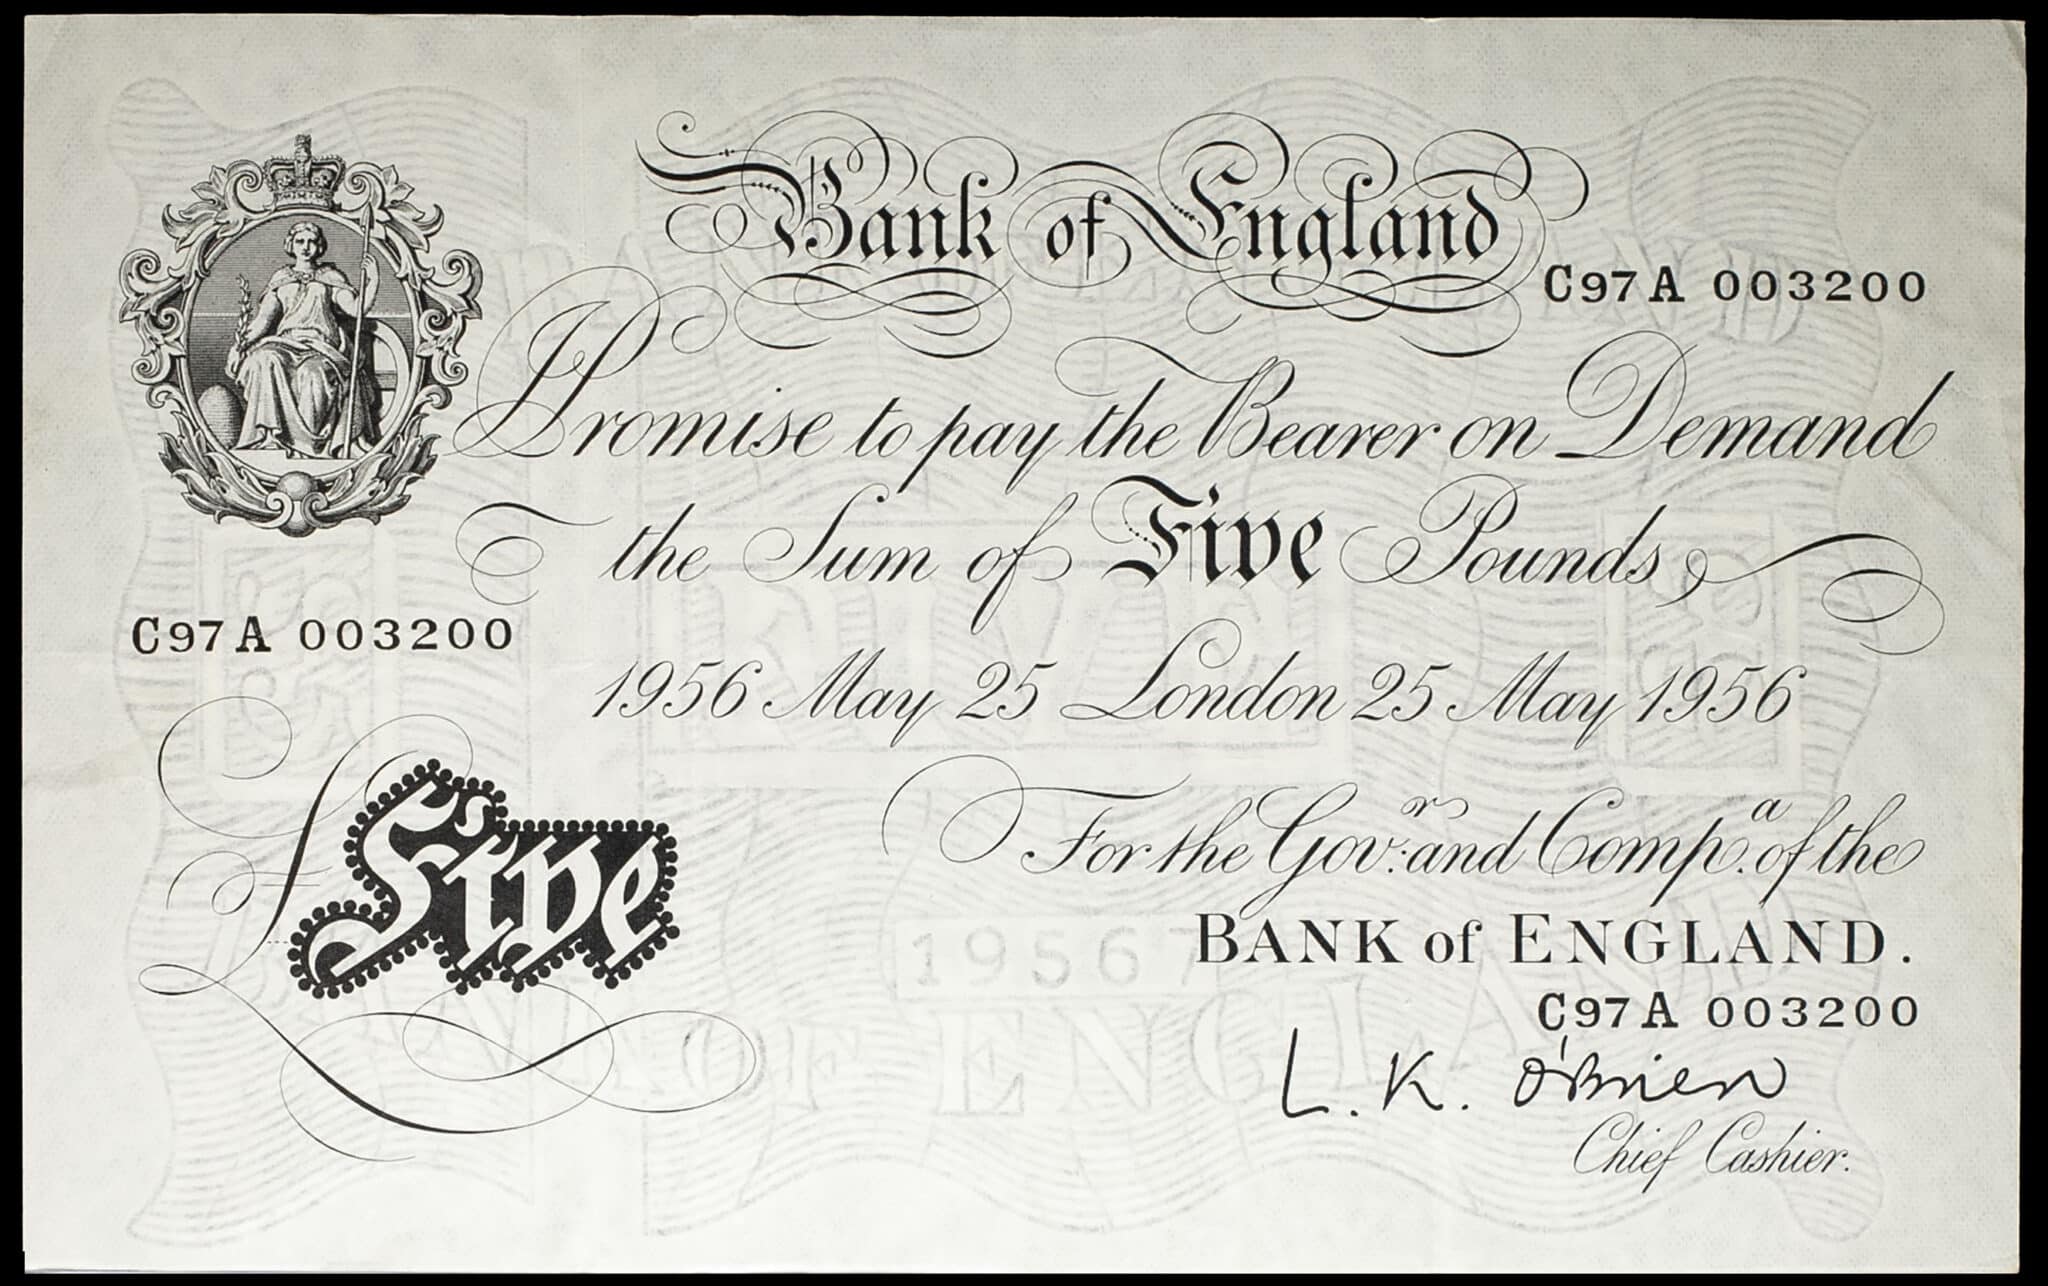 Bank of England
C97A 003200
I Promise to pay the Bearer on Demand
the Sum of Five Pounds
C97A 003200
1956 May 25 London 25 May 1956
£Five
For the Gov.r and Comp.a of the
BANK of ENGLAND.
C97A 003200
L. K. O'Brien
Chief Cashier.
FIVE
1956
BANK OF ENGLAND